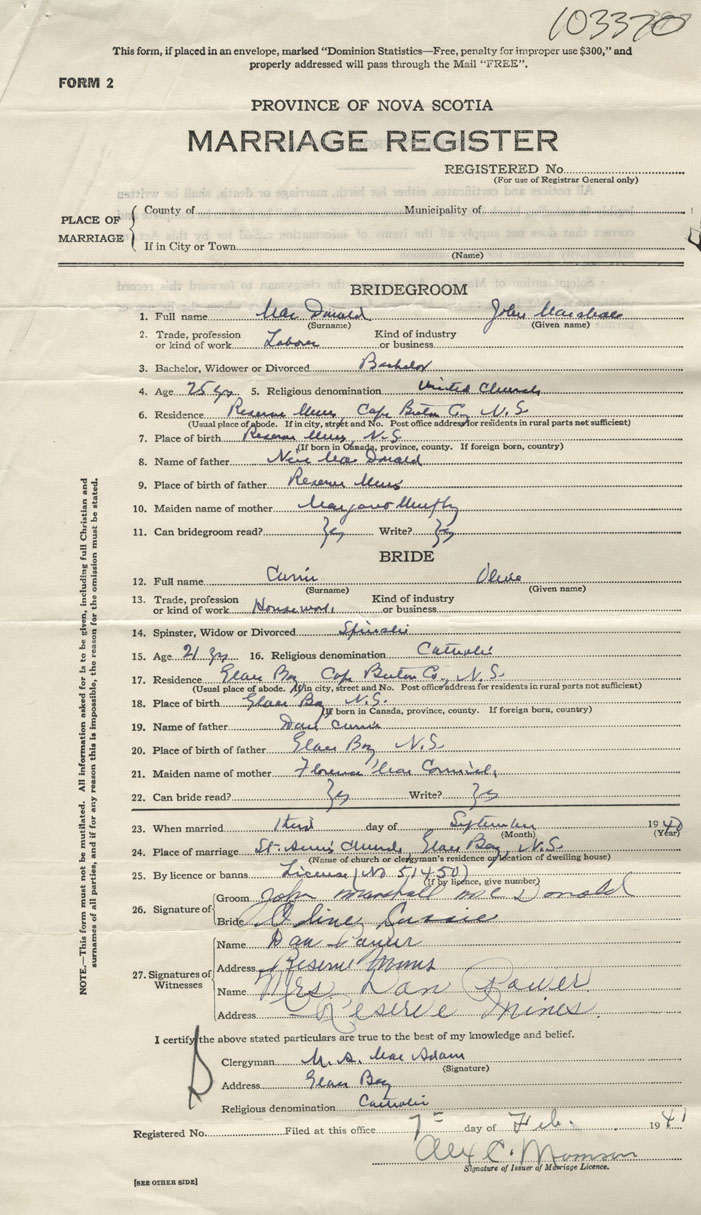 103370
This form, if placed in an envelope, marked "Dominion Statistics—Free, penalty for improper use $300," and
properly addressed will pass through the Mail "FREE".
FORM 2
PROVINCE OF NOVA SCOTIA
MARRIAGE REGISTER
REGISTERED No.
(For use of Registrar General only)
PLACE OF MARRIAGE
County of Municipality of
If in City or Town
(Name)
BRIDEGROOM
1. Full name Mac Donald John Marshall
(Surname) (Given name)
2. Trade, profession or kind of work Labour Kind of industry or business
3. Bachelor, Widower or Divorced Bachelor
4. Age 25 yrs 5. Religious denomination United Church
6. Residence Reserve Mines, Cape Breton Co., N.S.
(Usual place of abode. If in city, street and No. Post office address for residents in rural parts not sufficient)
7. Place of birth Reserve Mines, N.S.
(If born in Canada, province, county. If foreign born, country)
8. Name of father Mac Donald
9. Place of birth of father Reserve Mines
10. Maiden name of mother Margaret Murphy
11. Can bridegroom read? Yes Write? Yes
BRIDE
12. Full name Currie Olive
(Surname) (Given name)
13. Trade, profession or kind of work Housework Kind of industry or business
14. Spinster, Widow or Divorced Spinster
15. Age 21 yrs 16. Religious denomination Catholic
17. Residence Glace Bay Cape Breton Co., N.S.
(Usual place of abode. If in city, street and No. Post office address for residents in rural parts not sufficient)
18. Place of birth Glace Bay N.S.
(If born in Canada, province, county. If foreign born, country)
19. Name of father Dan Currie
20. Place of birth of father Glace Bay N.S.
21. Maiden name of mother Florence Mac
22. Can bride read? Yes Write? Yes
23. When married third day of September 1940
(Month) (Year)
24. Place of marriage St. Anne's Church, Glace Bay, N.S.
(Name of church or clergyman's residence or location of dwelling house)
25. By licence or banns License (No 51450)
(If by licence, give number)
26. Signature of
Groom John Marshall McDonald
Bride Currie
27. Signatures of Witnesses
Name Dan Power
Address Reserve Mines
Name Mrs. Dan Power
Address Reserve Mines.
I certify the above stated particulars are true to the best of my knowledge and belief.
Clergyman M. A. Mac Adam
(Signature)
Address Glace Bay
Religious denomination Catholic
Registered No. Filed at this office 7 day of Feb. 1941
Alex C.
Signature of Issuer of Marriage Licence.
[SEE OTHER SIDE]
NOTE.—This form must not be mutilated. All information asked for is to be given, including full Christian and
surnames of all parties, and if for any reason this is impossible, the reason for the omission must be stated.